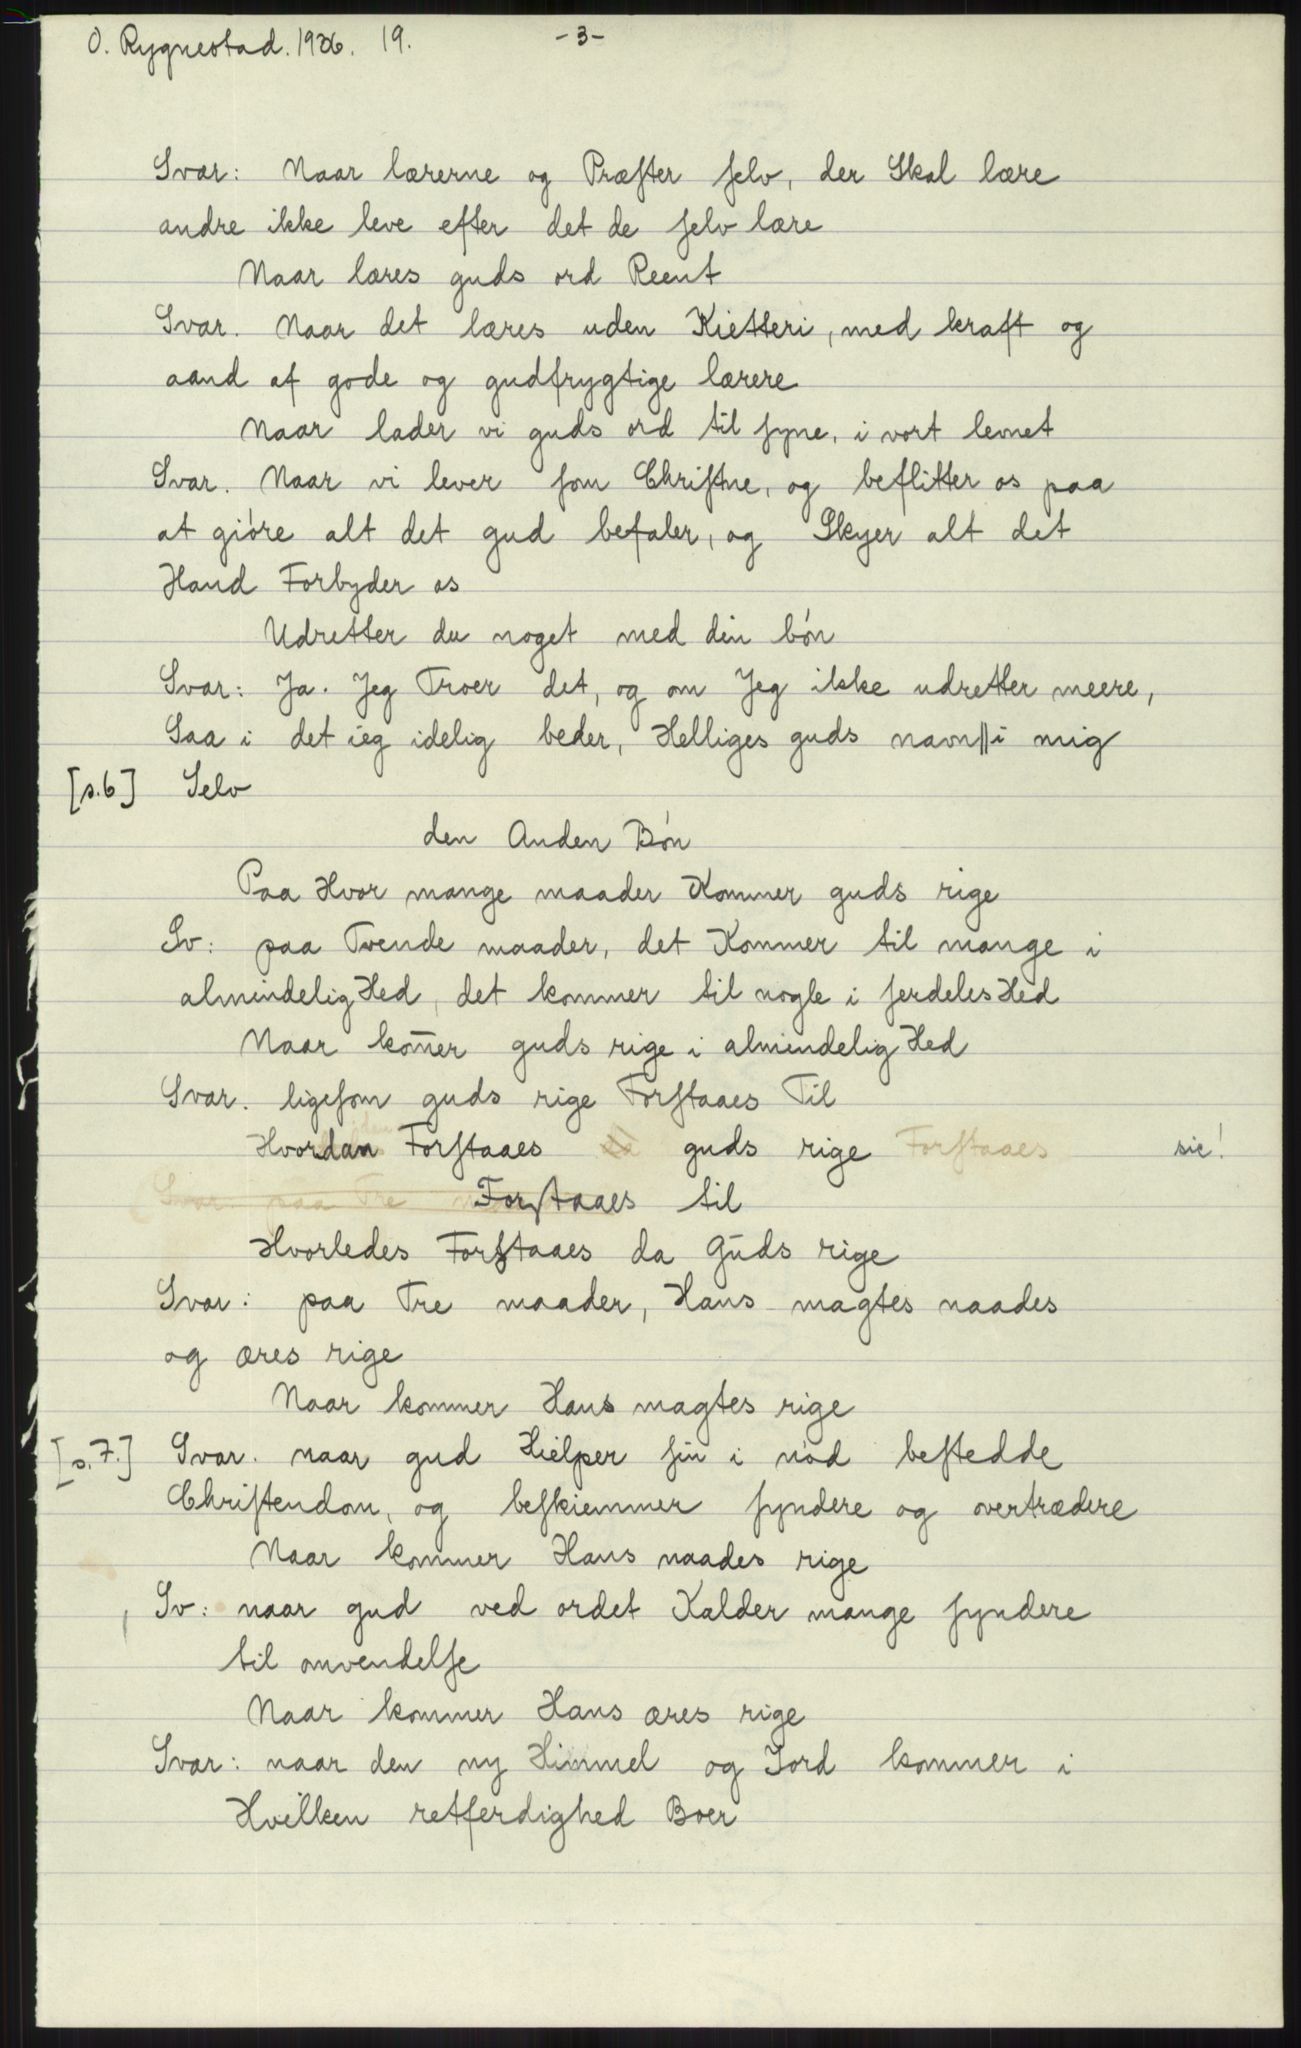 O. Rygnestad. 1926. 19. -3-
Svar: Naar lærerne og Præster selv, der Skal lære
andre ikke leve efter det de selv lære
Naar læres guds ord Reent
Svar. Naar det læres uden Kietteri, med kraft og
aand af gode og gudfrygtige lærere
Naar lader vi guds ord til syne, i vort levnet
Svar. Naar vi lever som Christne, og beflitter os paa
at gióre alt det gud befaler, og Skyer alt det
Hand Forbyder os
Udretter du noget med din bón
Svar: Ja. Jeg Troer det, og om Jeg ikke udretter meere,
Saa i det ieg idelig beder, Helliges guds navn || i mig
[s.6] Selv
den Anden Bón
Paa Hvor mange maader Kommer guds rige
Sv: paa Tvende maader, det Kommer til mange i
almindelig Hed, det kommer til nogle i serdeles Hed
Naar kom̄er guds rige i almindelig Hed
Svar. ligesom guds rige Forstaaes Til
Hvordan Forstaaes da guds rige Forstaaes sic!
Svar. paa Tre Forstaaes til
Hvorledes Forstaaes da Guds rige
Svar: paa Tre maader, Hans magtes naades
og æres rige
Naar kommer Hans magtes rige
[s.7.] Svar. naar gud Hielper sin i nód bestedde
Christendom, og beskiemmer syndere og overtrædere
Naar kommer Hans naades rige
Sv: naar gud ved ordet Kalder mange syndere
til omvendelse
Naar kommer Hans æres rige
Svar: naar den ny Himmel og Jord kommer i
Hvilken retferdighed Boer